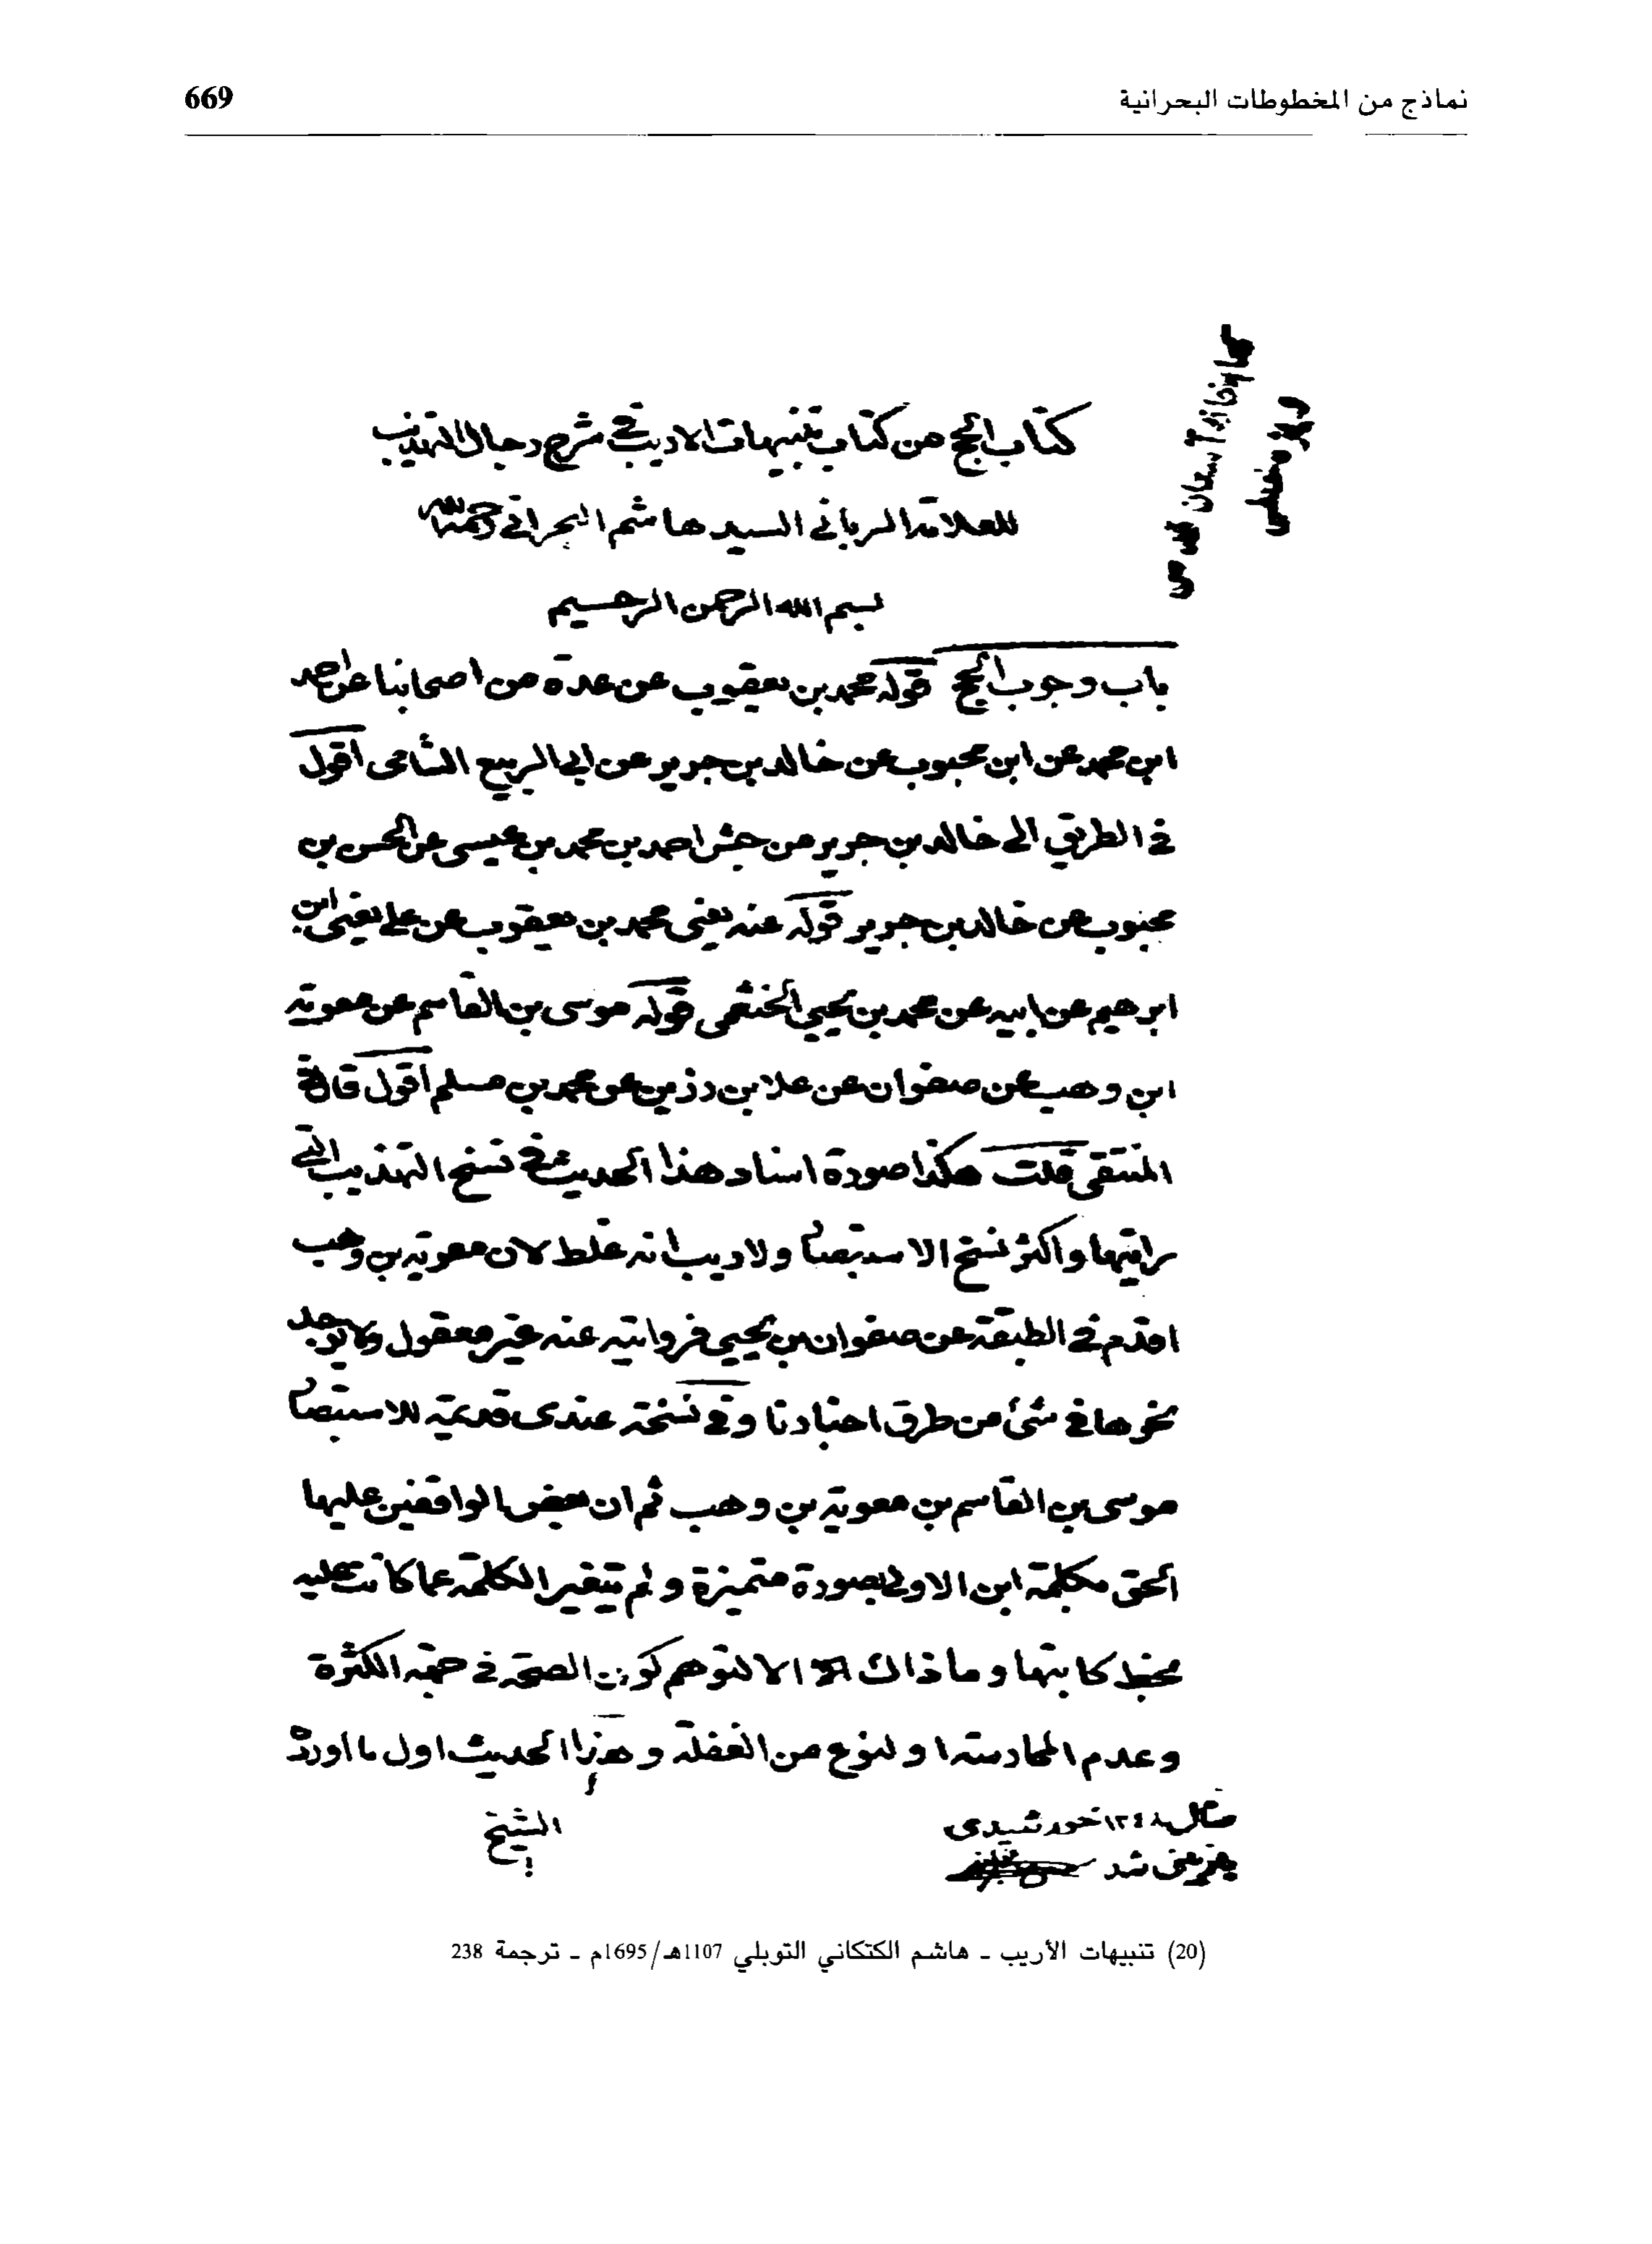 نماذج من المخطوطات البحرانية
669
كتاب الحج من كتاب تنبيهات الاريب في شرح رجال التهذيب
للعلامة الرباني السيد هاشم البحراني رحمه الله
بسم الله الرحمن الرحيم
باب وجوب الحج قوله محمد بن يعقوب عن عدة من اصحابنا عن احمد
ابن محمد عن ابن محبوب عن خالد بن جرير عن ابي الربيع الشامي اقول
في الطريق الى خالد بن جرير من احمد بن محمد بن عيسى عن الحسن بن
محبوب عن خالد بن جرير قوله عنه يعني محمد بن يعقوب عن علي يعني ابن
ابرهيم عن ابيه عن محمد بن يحيى الخثعمي قوله موسى بن القاسم عن معوية
ابن وهب عن صفوان عن علا بن رزين عن محمد بن مسلم اقول قال في
المنتقى قلت هكذا صورة اسناد هذا الحديث في نسخ التهذيب التي
رايتها واكثر نسخ الاستبصار ولا ريب انه غلط لان معوية بن وهب
اقدم في الطبقة من صفوان بن يحيى فروايته عنه غير معقول ولا يوجد
نحوها في شئ من طرق اخبارنا وفي نسخة عندي قديمة للاستبصار
موسى بن القاسم بن معوية بن وهب ثم ان بعض الواقفين عليها
الحق بكلمة ابن الاولى بصورة متميزة ولم يتغير الكلمة عما كانت عليه
بخط كاتبها وما ذاك الا لتوهم كون الصحة في جهة الكثرة
وعدم الممارسة او لنوع من الغفلة وهذا الحديث اول ما اورده
الشيخ
خورشيدى
شد
(20) تنبيهات الأريب - هاشم الكتكاني التوبلي 1107هـ/1695م - ترجمة 238